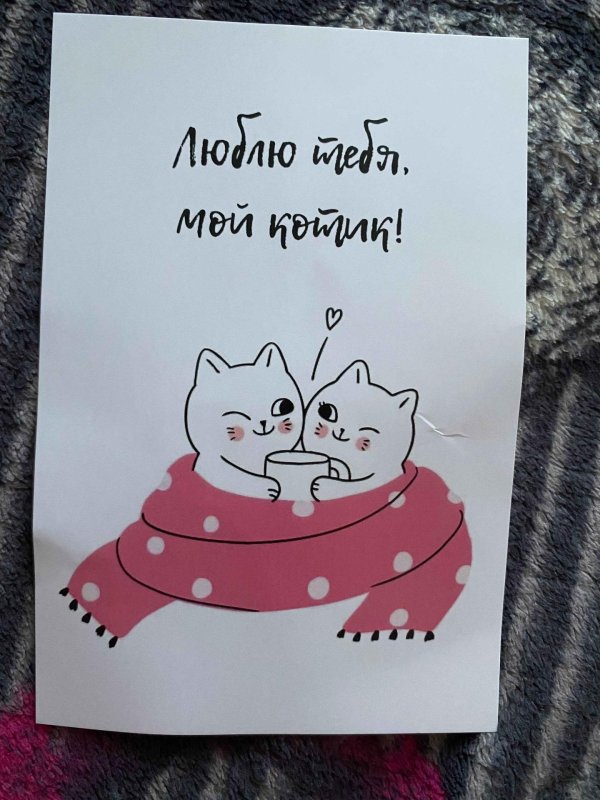 Люблю тебя,
мой котик!